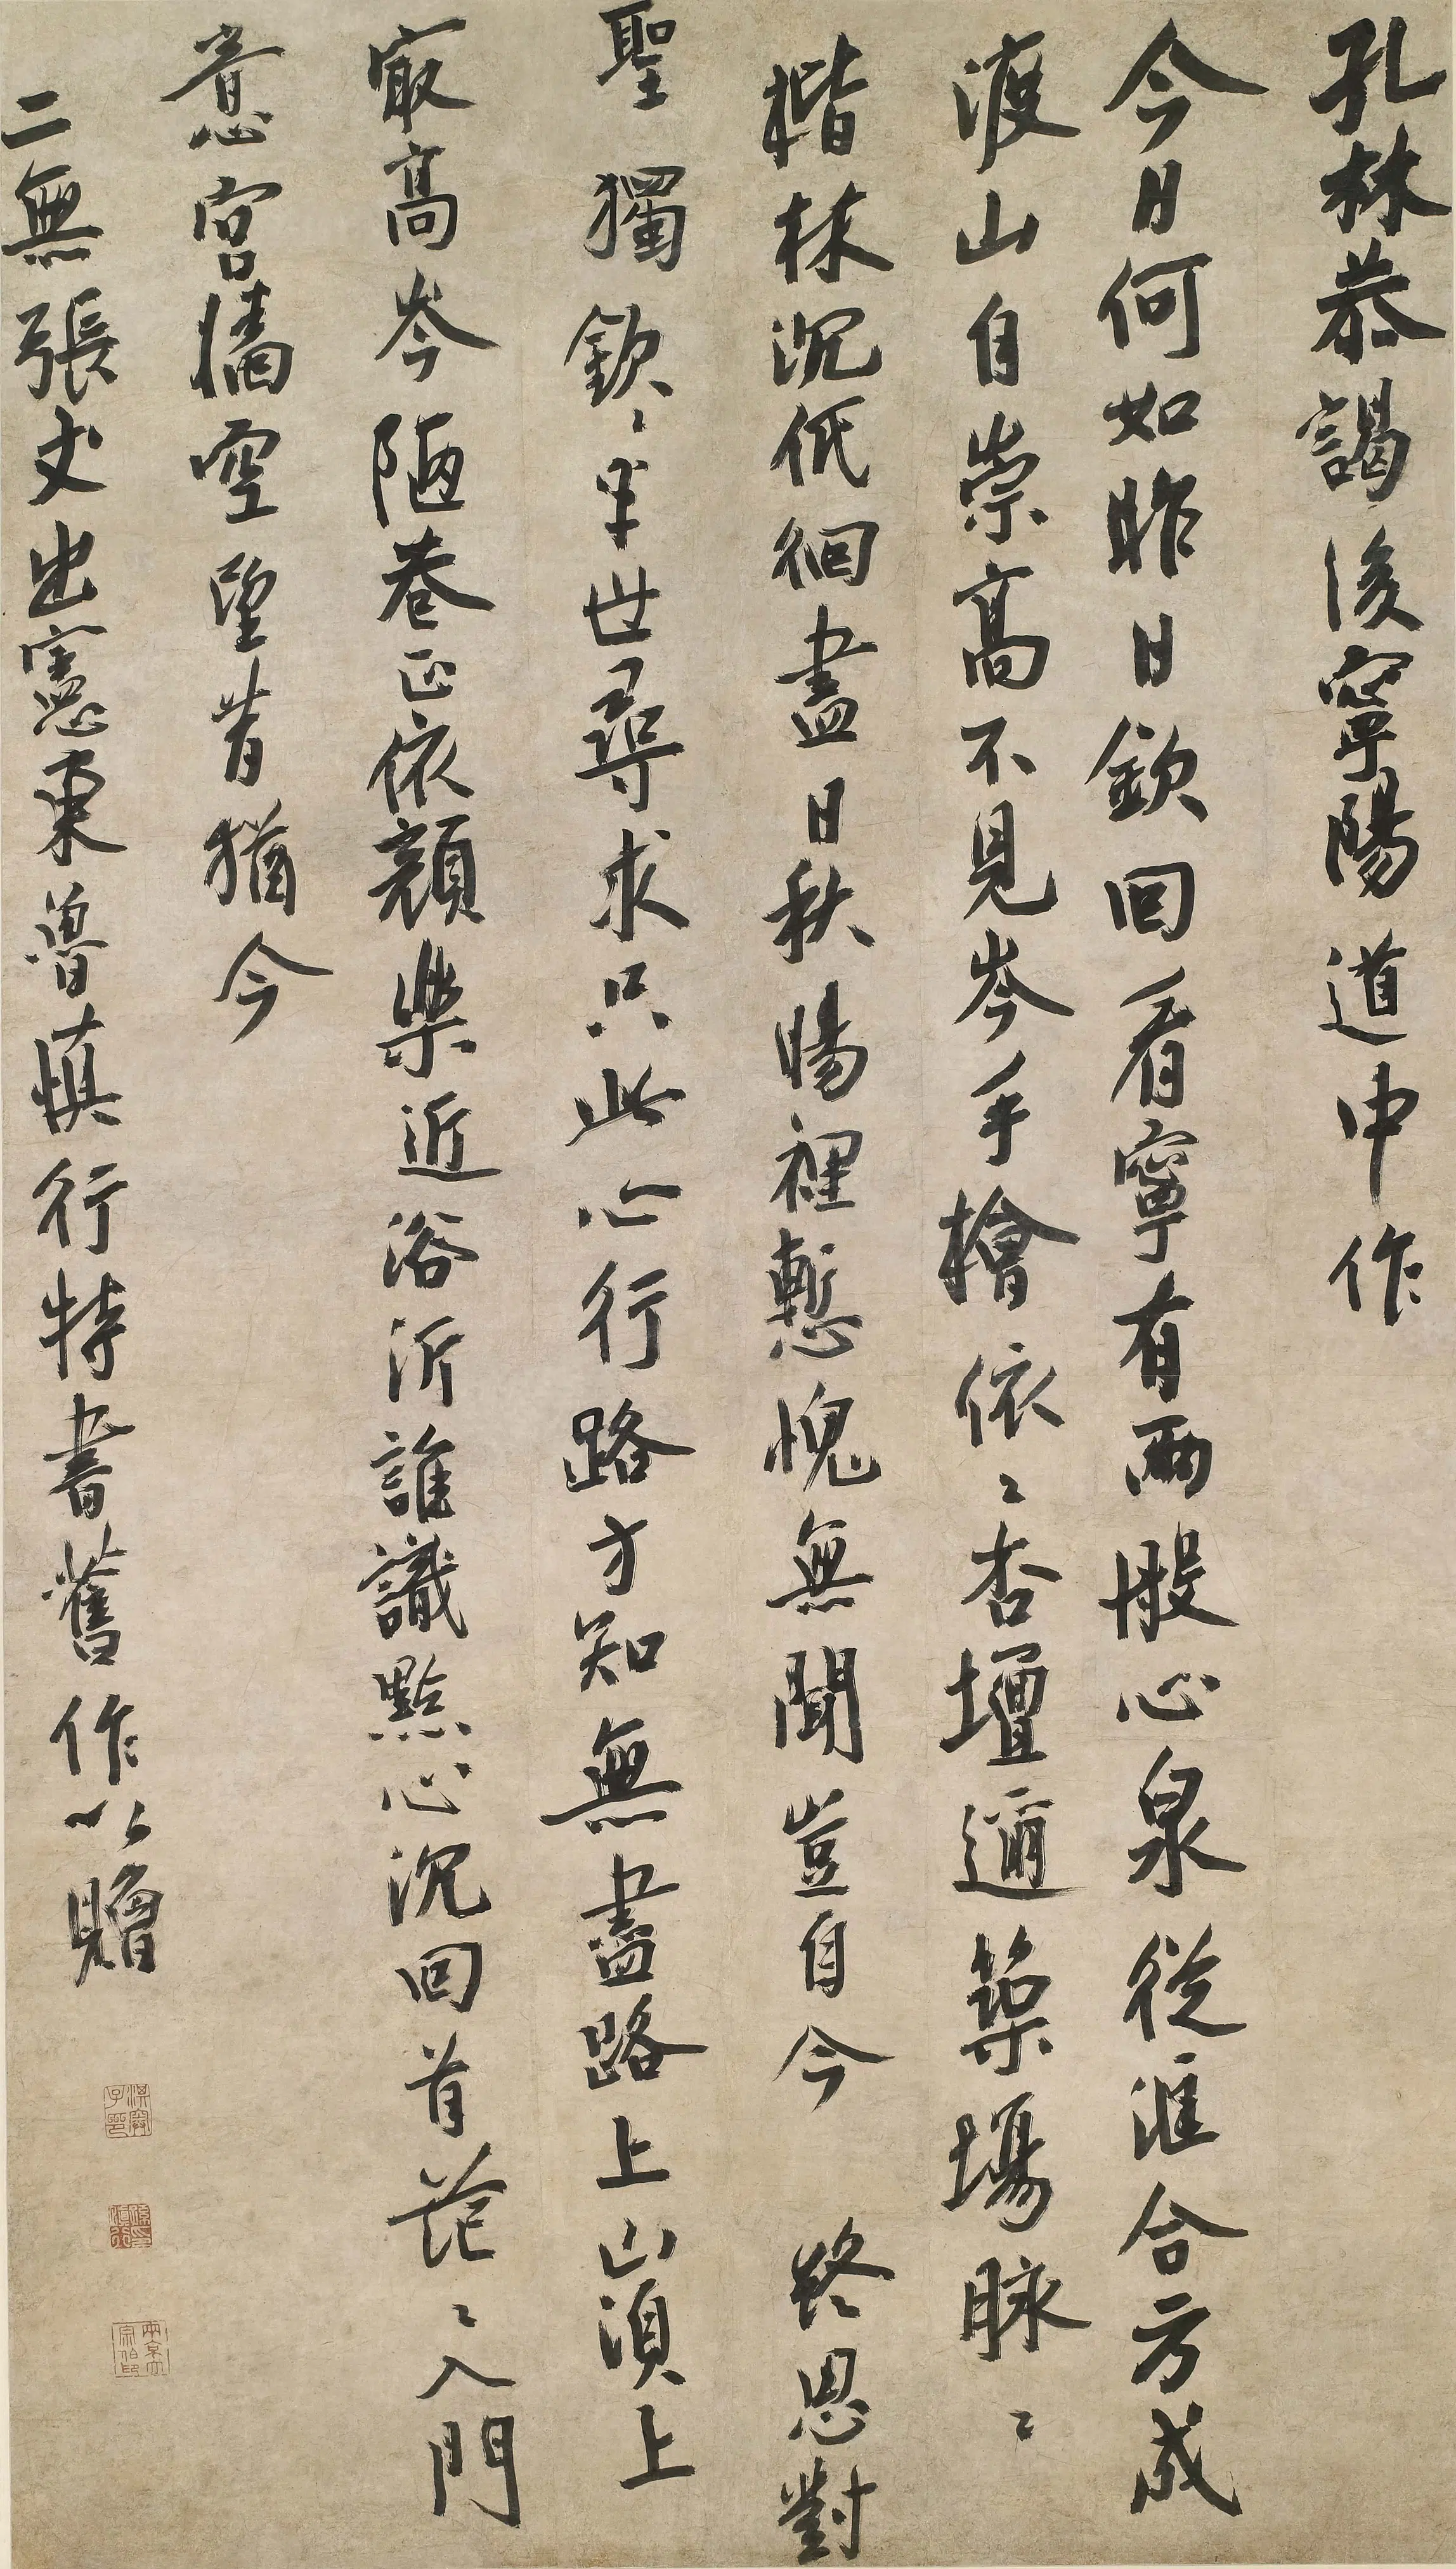 孔林恭謁後寧陽道中作
今日何如昨日欽回看寧有兩般心泉從匯合方成
渡山自崇高不見岑手檜依〻杏壇邇築場脉〻
楷林沉低徊盡日秋暘裡慙愧無聞豈自今 終思對
聖獨欽〻半世尋求只此心行路方知無盡路上山須上
最高岑陋巷正依顏樂近浴沂誰識點心沉回首茫〻入門
意宮牆空望昔猶今
二無張丈出憲東魯慎行特書舊作以贈